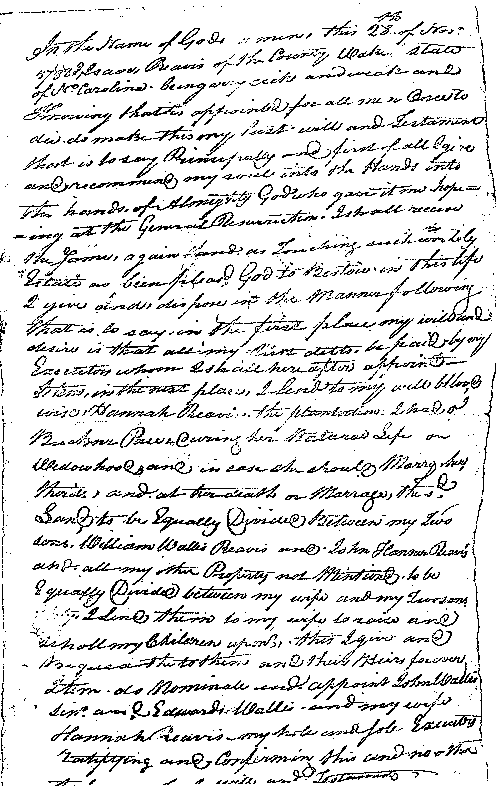 In the Name of God amen, this 28th of Novr.
Isaac Reavis of the County Wake, state
of No. Carolina being very sick and weak and
Knowing that tis appointed for all men Once to
die do make this my last will and Testament
that is to say Principally and first of all I give
and recommend my soul into the Hands into
the hands of Almighty God who gave it me hope=
=ing at the General Resurrection I shall receive
the same again and as Touching such worldly
Estate as been pleasd God to Bestow in this life
I give and dispose in the Manner following
that is to say in the first place my will and
desire is that all my Just debts be paid by my
Executors whom I shall here after appoint
Item, in the next place, I Lend to my well belovd
wife Hannah Reavis the plantation I had of
Buckner Pace, during her Natural Life or
Widowhood, and in case she should Marry her
thirds, and at her death or Marriage, the sd.
Land to be Equally Divided Between my Two
sons William Wallis Reavis and John Hanner Reavis
and all my other Property not Mentiond to be
Equally Divided between my wife and my Two sons
I Lend them to my wife to raise and
scholl my Children upon, this I give and
Bequeath to them and their Heirs forever
Item do Nominate and appoint John Wallis
senr. and Edward Wallis and my wife
Hannah Reavis my hole and sole Executors
Ratifying and Confirming this and no other
will and Testament